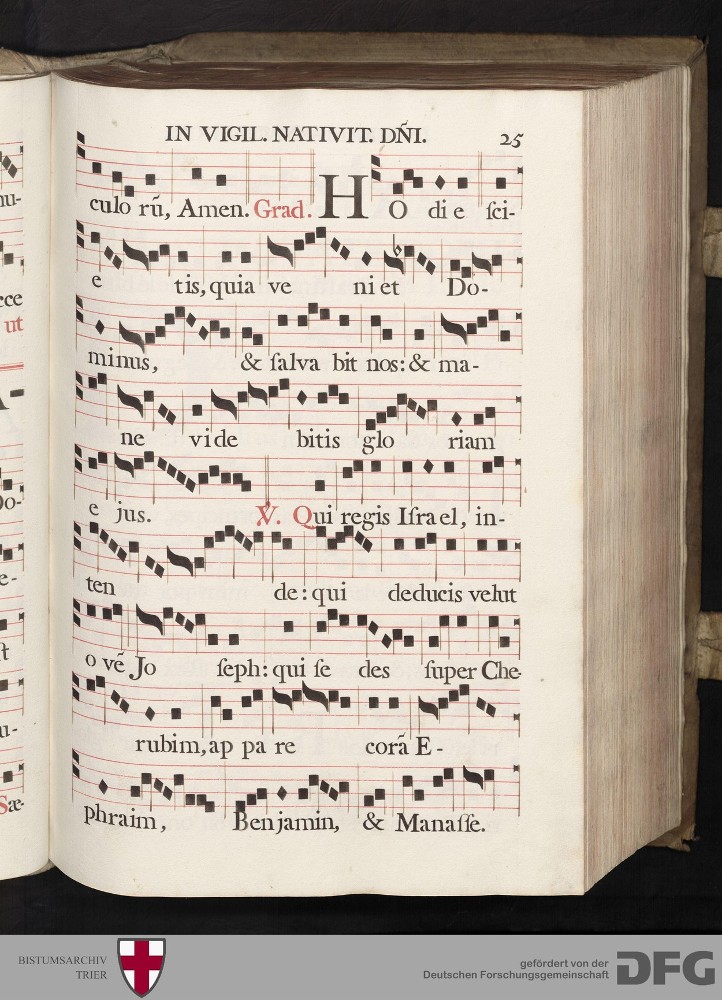 IN VIGIL. NATIVIT. DÑI. 25
culo rū, Amen. Grad. HO die ſci-
e tis, quia ve ni et Do-
minus, & ſalva bit nos: & ma-
ne vide bitis glo riam
e jus. ℣. Qui regis Iſrael, in-
ten de: qui deducis velut
o vē Jo ſeph: qui ſe des ſuper Che-
rubim, ap pa re corā E-
phraim, Benjamin, & Manaſſe.
nu-
cce
ut
A-
Do-
e-
ſt
u-
Sæ-
BISTUMSARCHIV
TRIER
gefördert von der
Deutschen Forschungsgemeinschaft
DFG